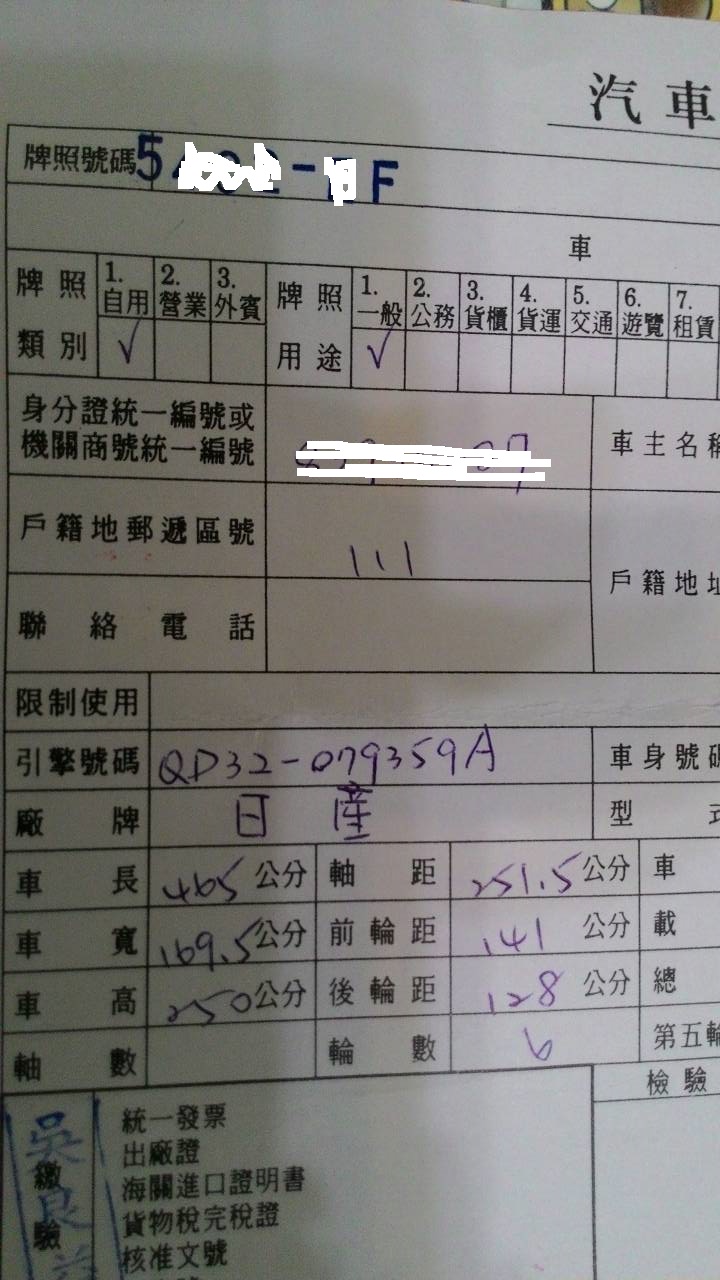 汽車
牌照號碼 5 - F
車
牌照類別 1.自用 2.營業 3.外賓 牌照用途 1.一般 2.公務 3.貨櫃 4.貨運 5.交通 6.遊覽 7.租賃
√ √
身分證統一編號或
機關商號統一編號
車主名稱
戶籍地郵遞區號 111
戶籍地址
聯絡電話
限制使用
引擎號碼 QD32-079359A 車身號碼
廠牌 日產 型式
車長 465公分 軸距 251.5公分 車
車寬 169.5公分 前輪距 141公分 載
車高 250公分 後輪距 128公分 總
軸數 輪數 6 第五輪
檢驗
繳驗
吳良
統一發票
出廠證
海關進口證明書
貨物稅完稅證
核准文號